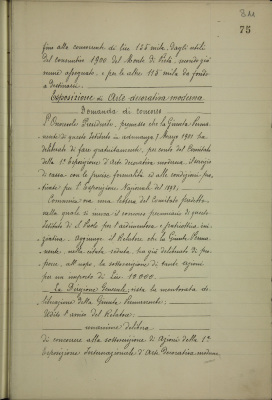 311
75
fino alla concorrenza di lire 135 mila, dagli utili
del consuntivo 1900 del Monte di Pietà, e per le altre 115 mila da fondo
a destinarsi.
Esposizione di Arte decorativa moderna
Domanda di concorso
Il Presidente, premesso che la Giunta Perma-
nente di questo Istituto in adunanza 7 Marzo 1901 ha
deliberato di fare gratuitamente, per conto del Comitato
della 1ª Esposizione d'Arte decorativa moderna, il servizio
di cassa con le precise formalità ed alle condizioni pra-
ticate per l'Esposizione Nazionale del 1898;
Comunica ora una lettera del Comitato predetto
nella quale si invoca il concorso pecuniario di questo
Istituto di S. Paolo per l'ardimentosa e patriottica ini-
ziativa. Aggiunge il Relatore che la Giunta Perma-
nente, nella citata seduta, ha già deliberato di pro-
porre, all'uopo, la sottoscrizione di cento azioni
per un importo di Lire 10.000.
La Direzione Generale; vista la mentovata de-
liberazione della Giunta Permanente;
Udito l'avviso del Relatore;
unanime delibera
di concorrere alla sottoscrizione di Azioni della 1ª
Esposizione Internazionale d'Arte Decorativa moderna,